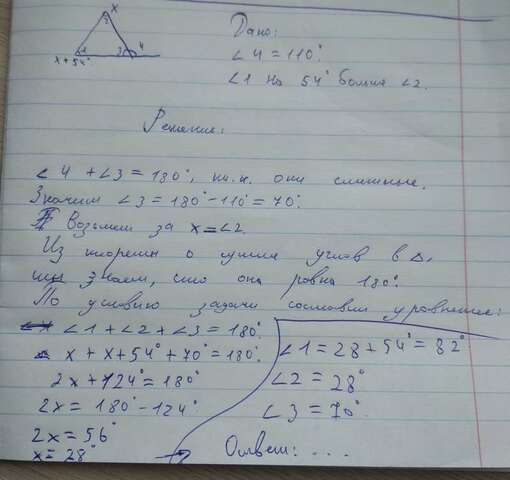 x
2
x+54°
1
3
4
Дано:
∠4=110°.
∠1 на 54° больше ∠2.
Решение:
∠4+∠3=180°, т.к. они смежные.
Значит ∠3=180°-110°=70°.
Возьмем за x=∠2.
Из теоремы о сумме углов в △,
мы знаем, что она равна 180°.
По условию задачи составим уравнение:
∠1+∠2+∠3=180°.
x+x+54°+70°=180°.
2x+124°=180°
2x=180°-124°
2x=56°
x=28°
∠1=28+54°=82°
∠2=28°
∠3=70°.
Ответ: ...